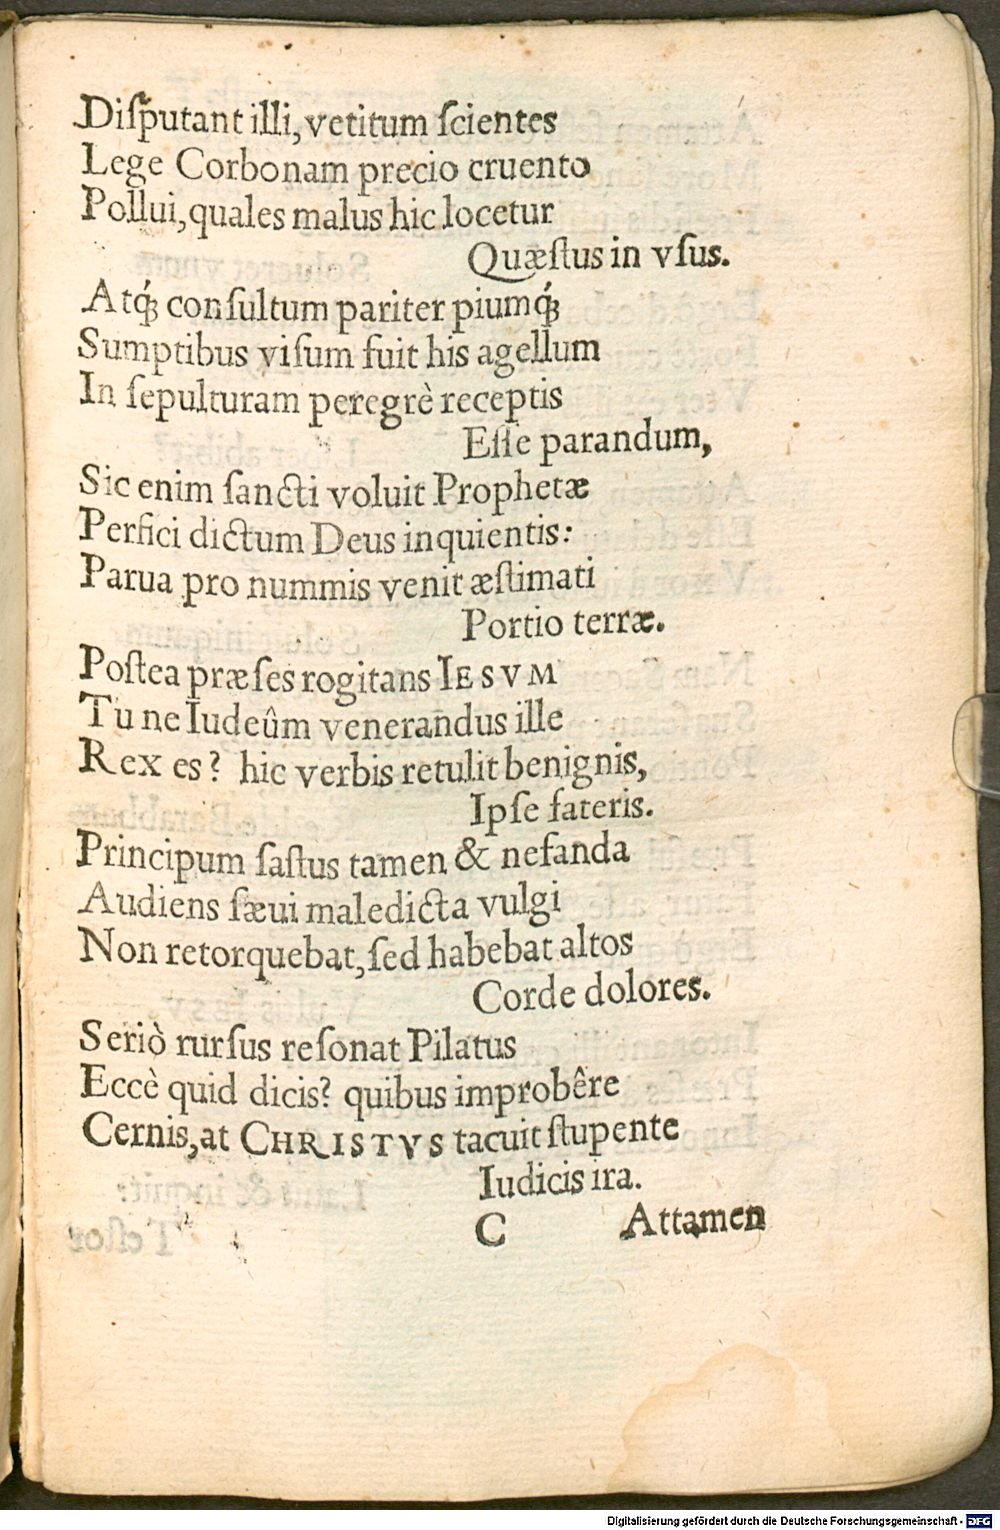 Diſputant illi, vetitum ſcientes
Lege Corbonam precio cruento
Pollui, quales malus hic locetur
Quæſtus in vſus.
Atq́ꝫ conſultum pariter piumq́ꝫ
Sumptibus viſum fuit his agellum
In ſepulturam peregrè receptis
Eſſe parandum,
Sic enim ſancti voluit Prophetæ
Perfici dictum Deus inquientis:
Parua pro nummis venit æſtimati
Portio terræ.
Poſtea præſes rogitans IESVM
Tu ne Iudeûm venerandus ille
Rex es? hic verbis retulit benignis,
Ipſe fateris.
Principum faſtus tamen & nefanda
Audiens ſæui maledicta vulgi
Non retorquebat, ſed habebat altos
Corde dolores.
Seriò rurſus reſonat Pilatus
Eccè quid dicis? quibus improbêre
Cernis, at CHRISTVS tacuit ſtupente
Iudicis ira.
C Attamen
Digitalisierung gefördert durch die Deutsche Forschungsgemeinschaft - DFG